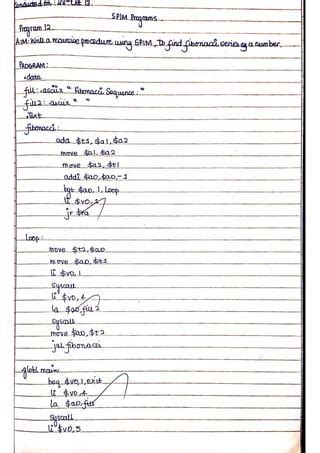 Conducted on: 13.
SPIM Programs
Program 12
AIM: Write a recursive procedure using SPIM, to find fibonacci series of a number.
PROGRAM:
.data
fill: .asciiz " Fibonacci Sequence: "
fill2: .asciiz " "
.text
fibonacci:
add $t1, $a1, $a2
move $a1, $a2
move $a2, $t1
addi $a0, $a0, -1
bgt $a0, 1, Loop
li $v0, 1
jr $ra
Loop:
move $t2, $a0
move $a0, $t1
li $v0, 1
syscall
li $v0, 4
la $a0, fill2
syscall
move $a0, $t2
jal fibonacci
.globl main
beq $v0, 1, exit
li $v0, 4
la $a0, fill
syscall
li $v0, 5